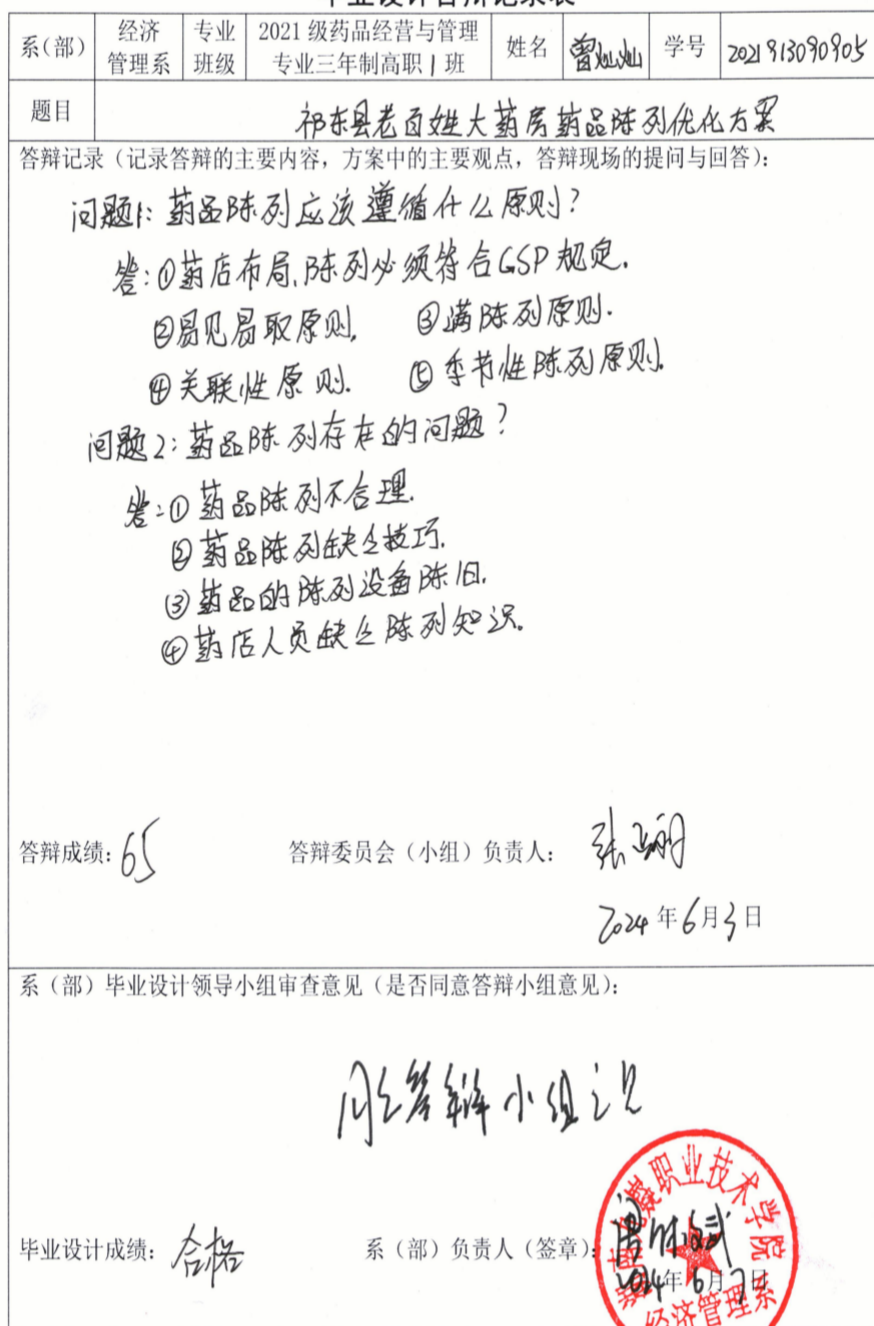 毕业设计答辩记录表
系(部) 经济管理系 专业班级 2021级药品经营与管理专业三年制高职1班 姓名 曾灿灿 学号 2021913090905
题目 祁东县老百姓大药房药品陈列优化方案
答辩记录（记录答辩的主要内容，方案中的主要观点，答辩现场的提问与回答）：
问题1：药品陈列应该遵循什么原则？
答：①药店布局、陈列必须符合GSP规定.
②易见易取原则. ③满陈列原则.
④关联性原则. ⑤季节性陈列原则.
问题2：药品陈列存在的问题？
答：①药品陈列不合理.
②药品陈列缺乏技巧.
③药品的陈列设备陈旧.
④药店人员缺乏陈列知识.
答辩成绩：65 答辩委员会（小组）负责人：
2024年6月3日
系（部）毕业设计领导小组审查意见（是否同意答辩小组意见）：
同意答辩小组意见
毕业设计成绩：合格 系（部）负责人（签章）：
2024年6月7日
职业技术学院
经济管理系